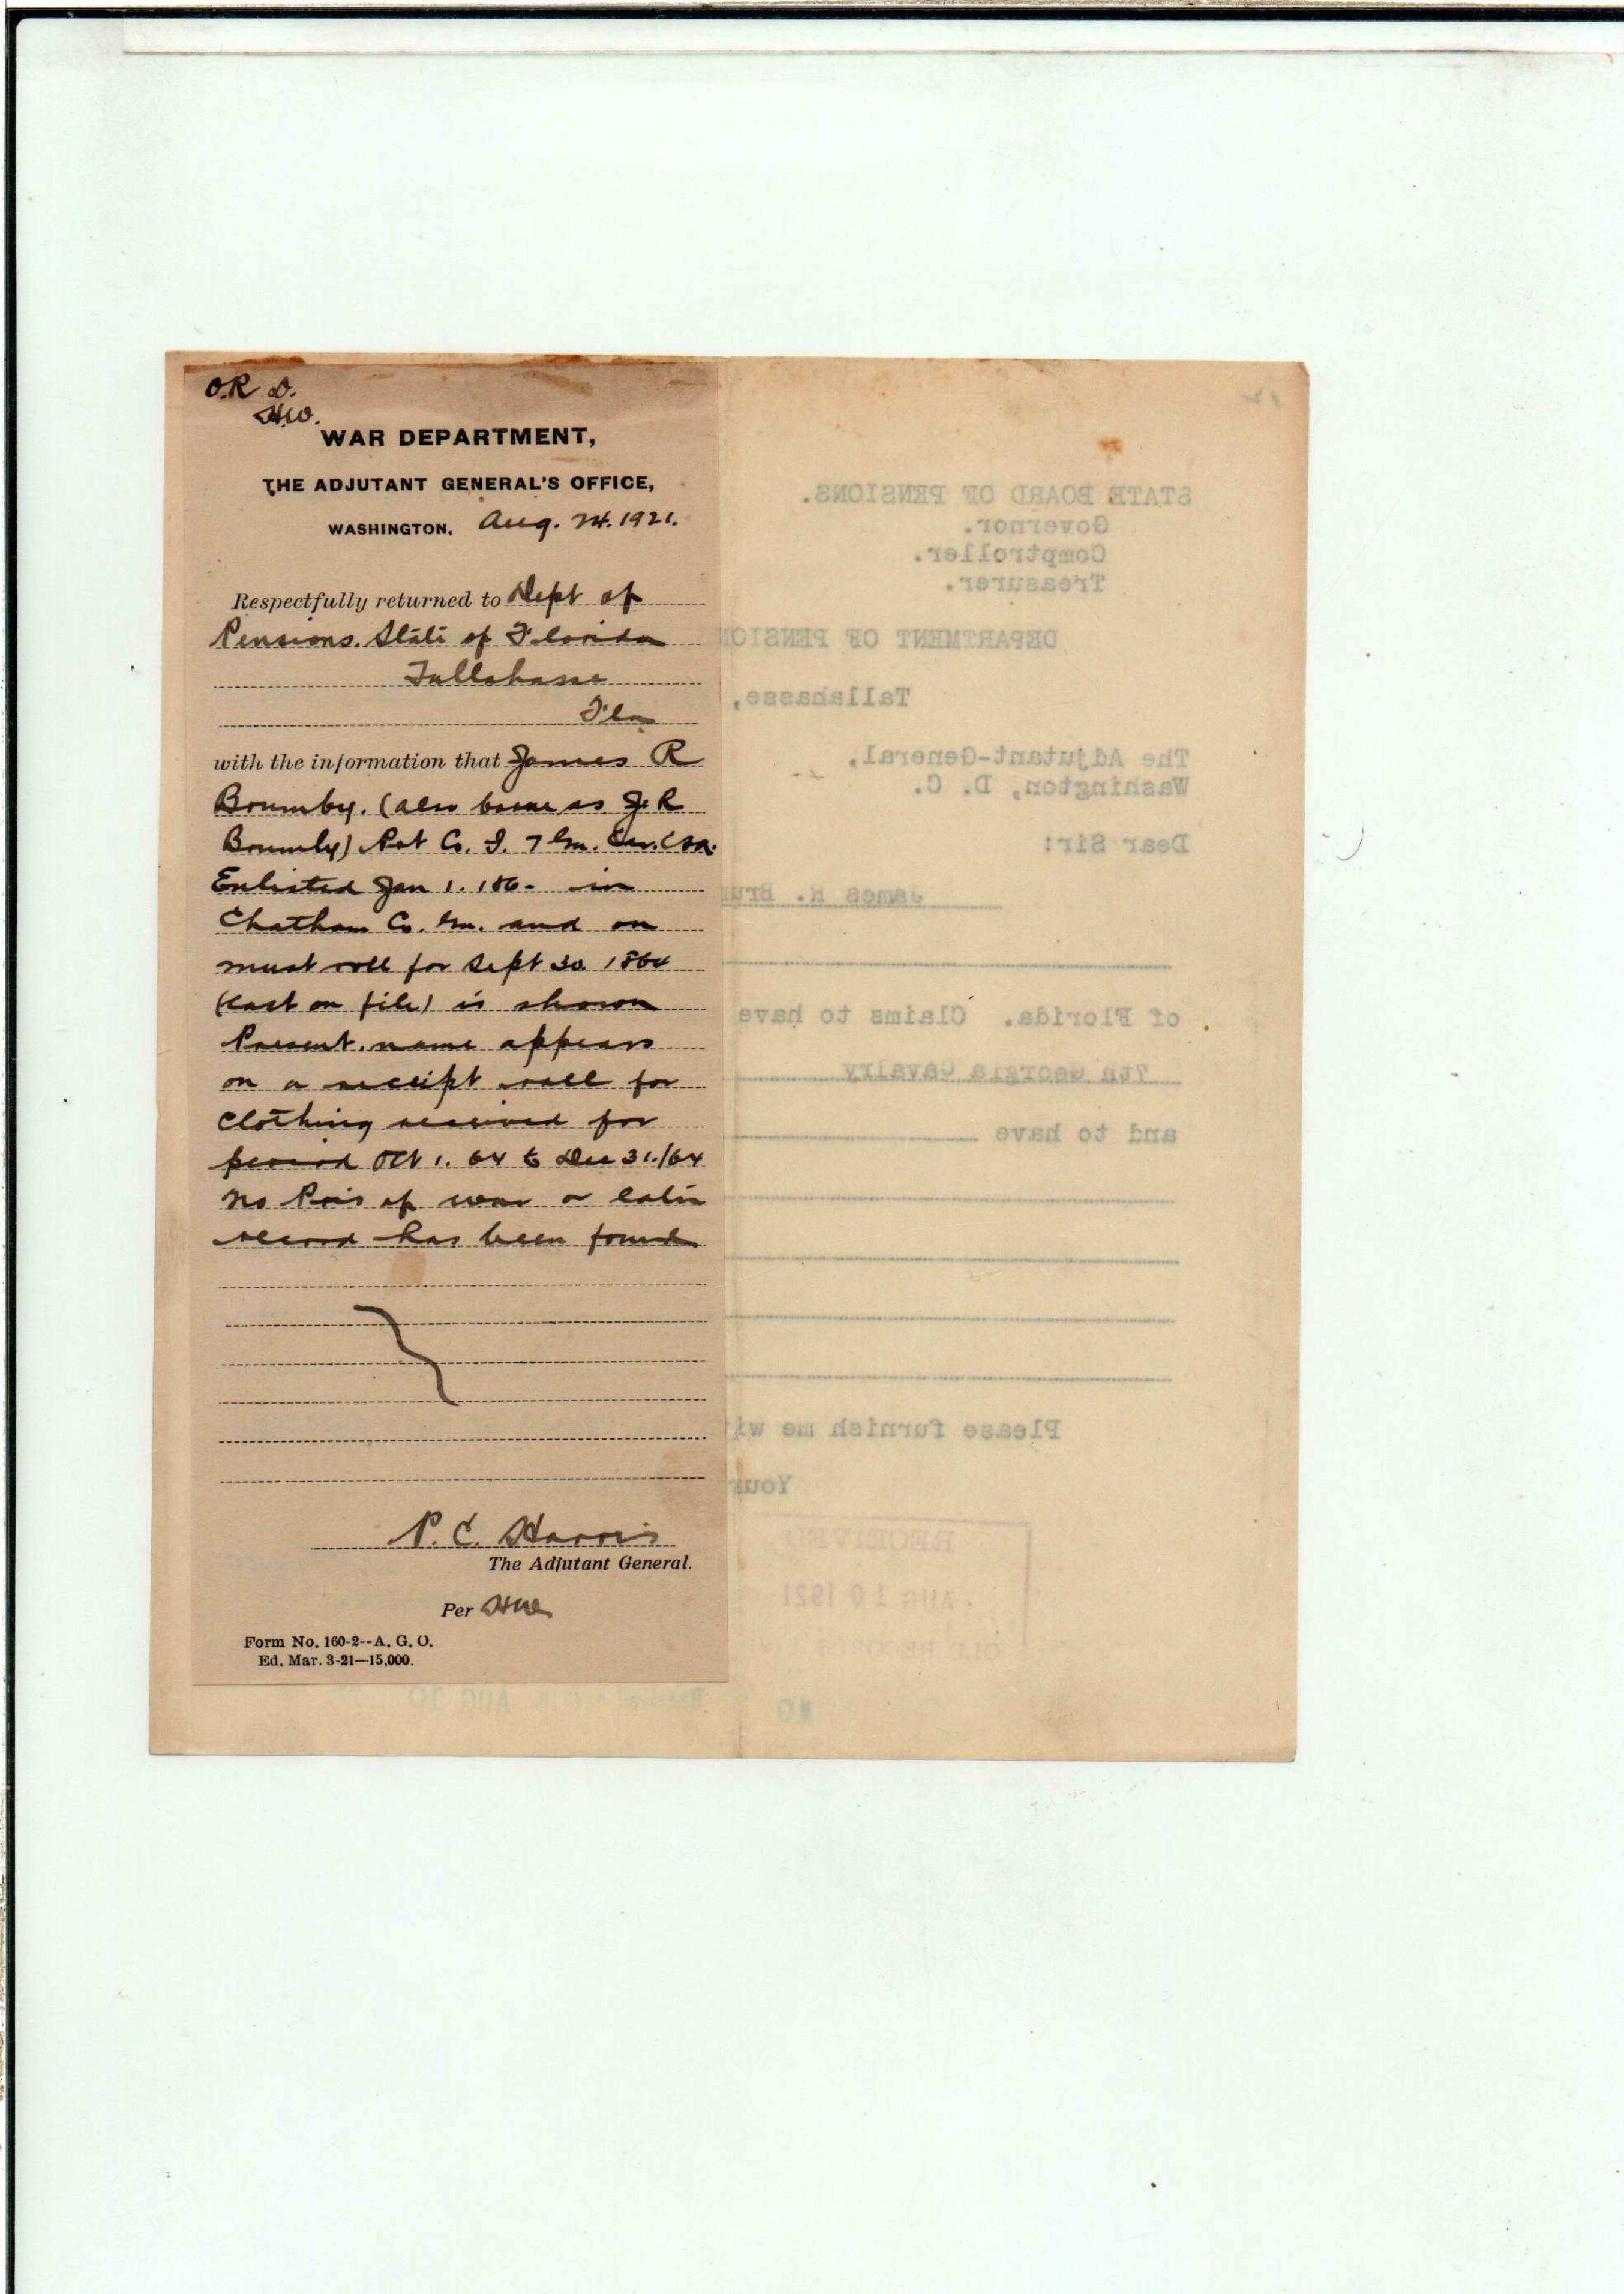 O.R D.
HW.
WAR DEPARTMENT,
THE ADJUTANT GENERAL'S OFFICE,
WASHINGTON, Aug. 24. 1921.
Respectfully returned to Dept of
Pensions. State of Florida
Tallahasse
Fla
with the information that James R
Brumby. (also borne as J. R
Brumby) Pvt Co. I. 7 Ga. Cav. CSA.
Enlisted Jan 1. 186- in
Chatham Co. Ga. and on
must roll for Sept 30 1864
(last on file) is shown
Present. name appears
on a receipt roll for
clothing received for
period Oct 1. 64 to Dec 31./64
No Pris of war or
record has been found
P. C. Harris
The Adjutant General.
Per
Form No. 160-2--A. G. O.
Ed. Mar. 3-21—15,000.
STATE BOARD OF PENSIONS.
Governor.
Comptroller.
Treasurer.
DEPARTMENT OF PENSIO
Tallahasse,
The Adjutant-General,
Washington, D. C.
Dear Sir:
James R. Bru
of Florida. Claims to have
7th Georgia Cavalry
and to have
Please furnish me wi
Your
RECEIVED
AUG 10 1921
AUG 10